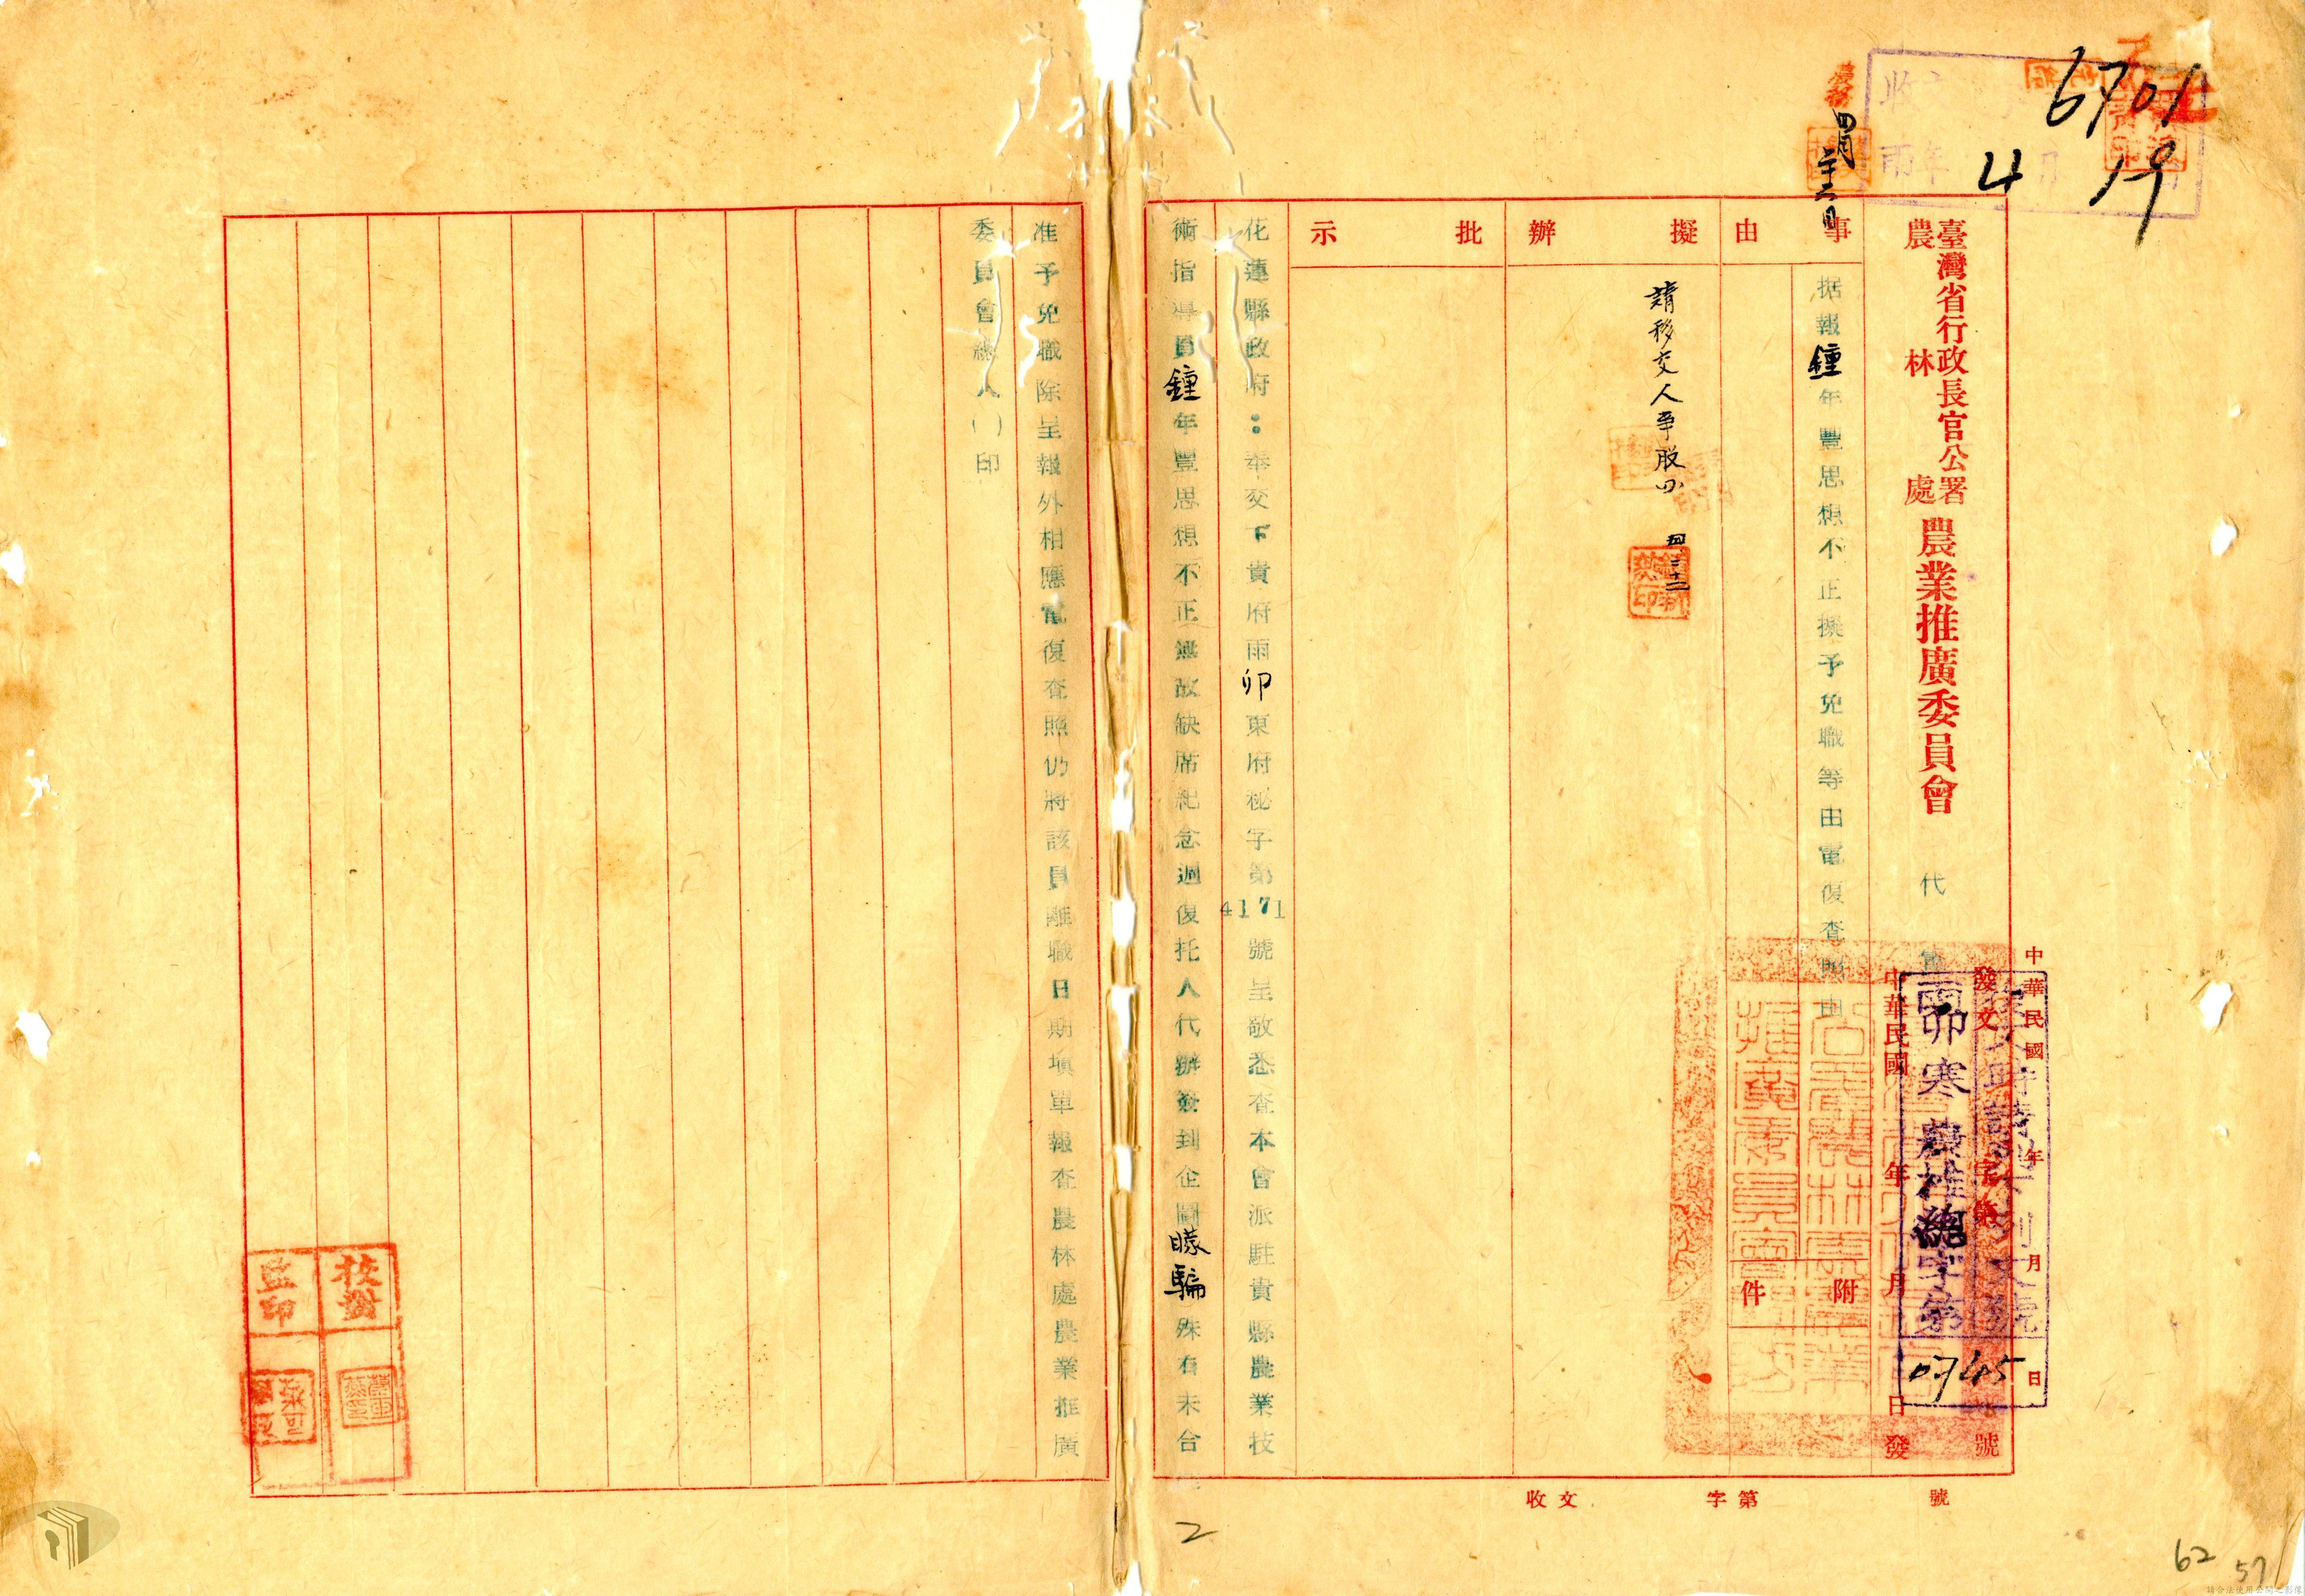 6701
4 19
四月
二十三日
臺灣省行政長官公署
農林處
農業推廣委員會
代電
中華民國 年 月 日
發文 字第 號
中華民國 年 月 日發
卯寒農推總字第
0745
號
附件
事由
据報鍾年豐思想不正擬予免職等由電復查照由
擬辦
請移交人事股
批示
花蓮縣政府：奉交下貴府雨卯東府秘字第4171號呈敬悉查本會派駐貴縣農業技
術指導員鍾年豐思想不正無故缺席紀念週復托人代辦簽到企圖矇騙殊有未合
准予免職除呈報外相應電復查照仍將該員離職日期填單報查農林處農業推廣
委員會總人()印
校對
監印
收文 字第 號
2
62
57
請合法使用公開之影像